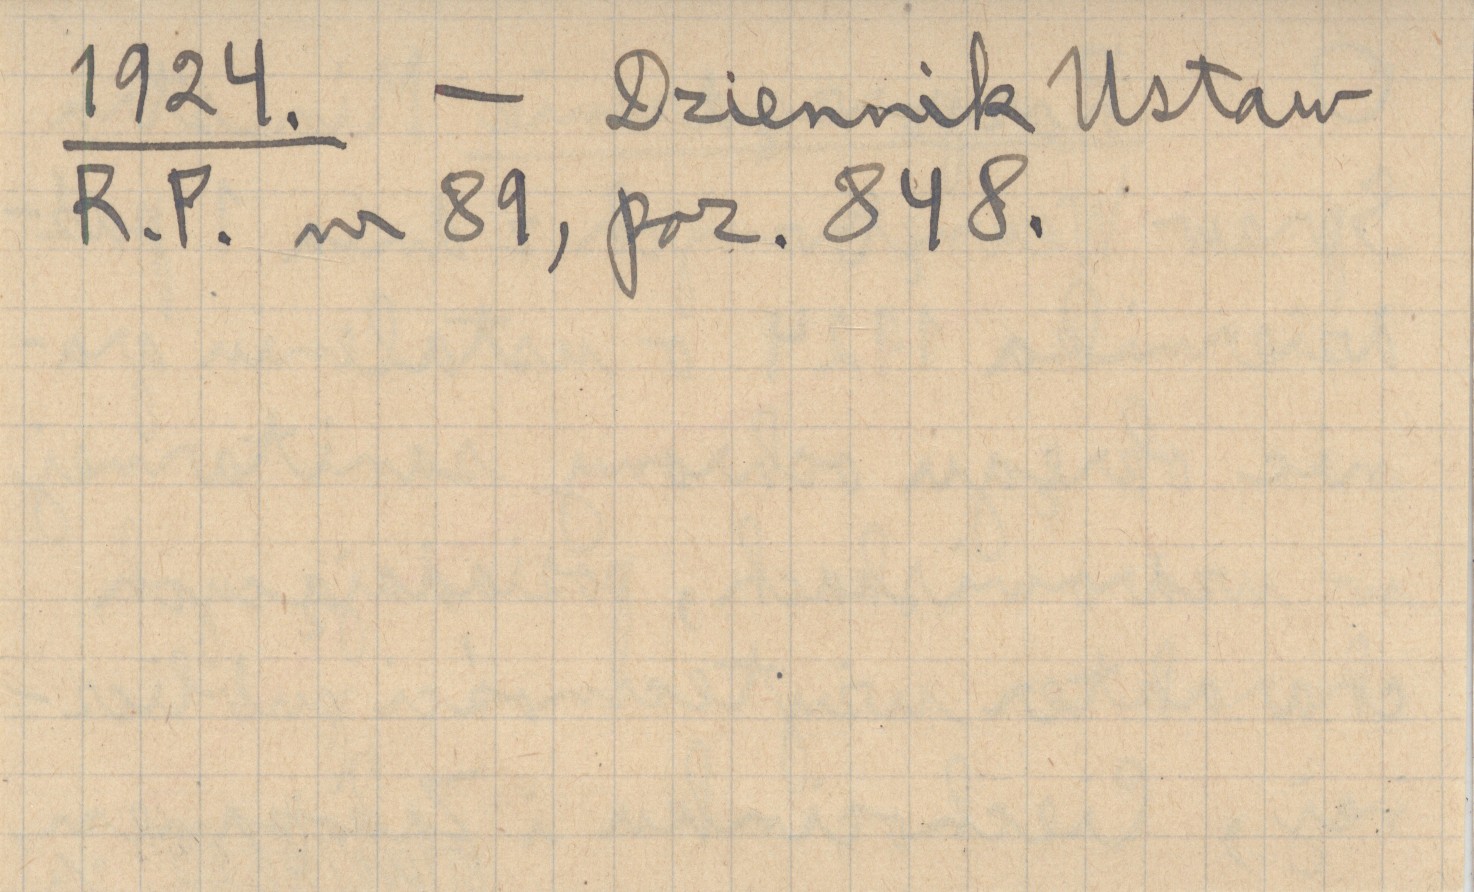 1924. — Dziennik Ustaw
R.P. nr 89, poz. 848.